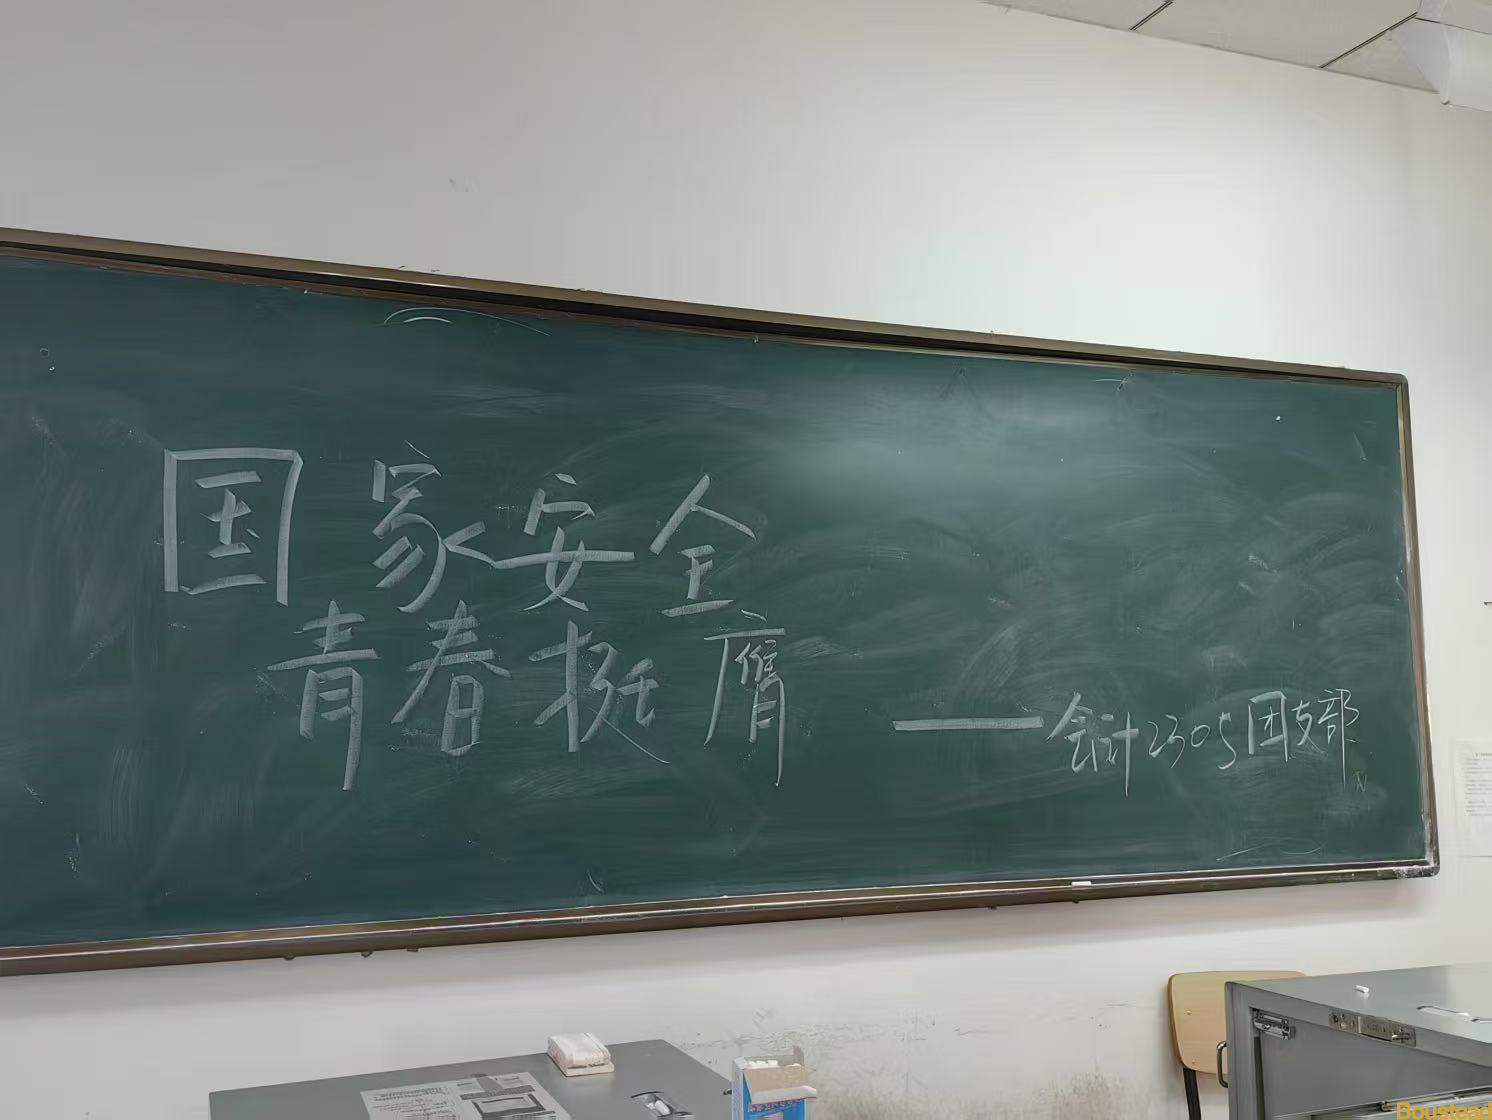 国家安全
青春挺膺
——会计2305团支部
Boustead